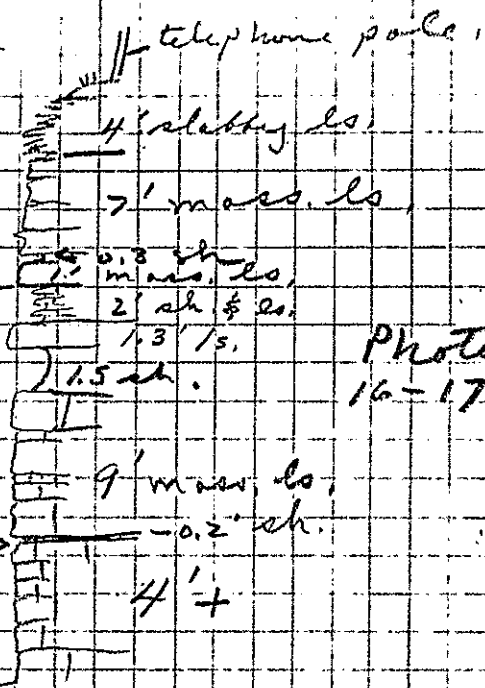 telephone pole.
4' slabby ls.
7' mass. ls.
0.3 sh
1.' mass. ls.
2' sh. & ls.
1.3' ls.
Photo
16-17
1.5 sh.
9' mass. ls.
-0.2' sh.
4'+